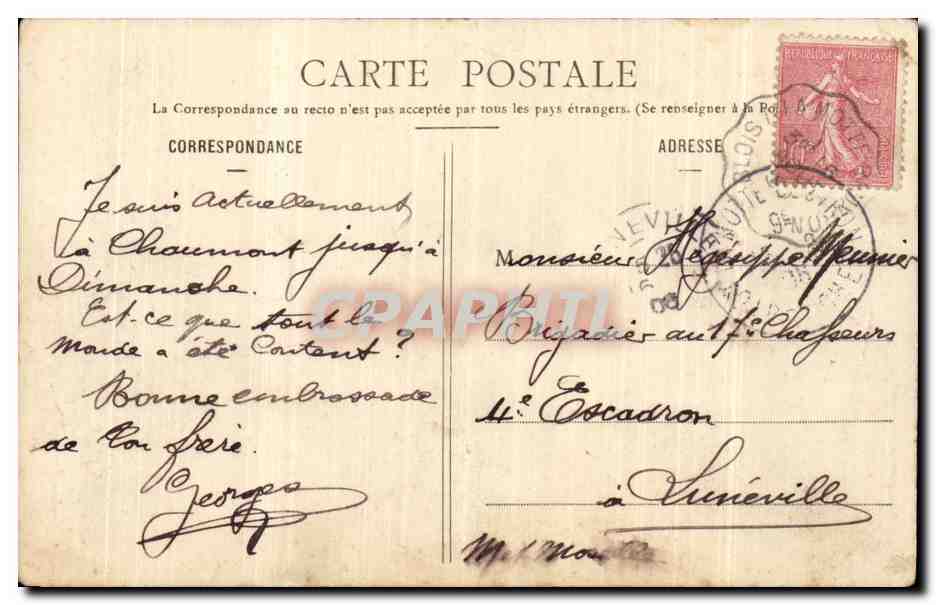 CARTE POSTALE
La Correspondance au recto n'est pas acceptée par tous les pays étrangers. (Se renseigner à la Poste)
CORRESPONDANCE
ADRESSE
REPUBLIQUE FRANÇAISE
Je suis actuellement
à Chaumont jusqu'à
Dimanche.
Est-ce que tout le
monde a été Content ?
Bonne embrassade
de ton frère.
Georges
Monsieur Meunier
Brigadier au 17e Chasseurs
4e Escadron
à Lunéville
Mthe Moselle
BLOIS A LAMOTTE-B
LAMOTTE-BEUVRON
LOIR-ET-CHER
NEVI
08
CPAPHIL